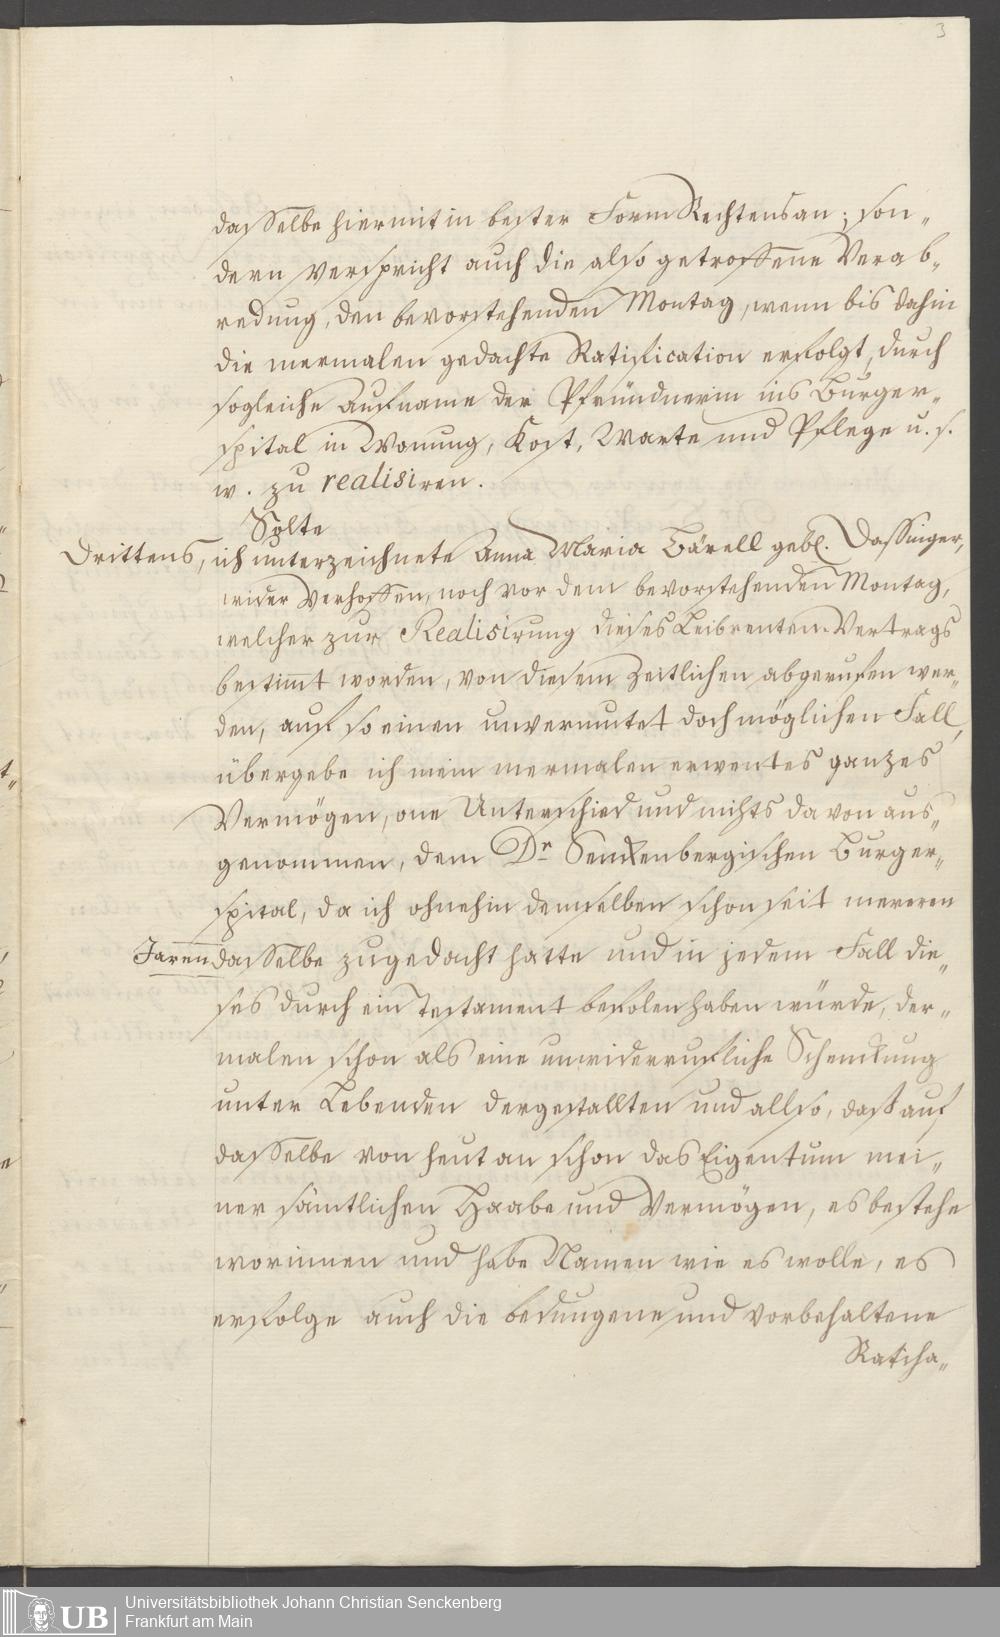 3
dasselbe hiermit in bester Form Rechtens an; son„
dern verspricht auch die also getroffene Verab„
redung, den bevorstehenden Montag, wenn bis dahin
die mermalen gedachte Ratification erfolgt, durch
sogleiche Aufname der Pfründnerin ins Burger„
spital in Wonung, Kost, Warte und Pflege u. s.
w. zu realisiren.
Solte
Drittens, ich unterzeichnete Anna Maria Bärell gebl. Dassinger,
wider Verhoffen, noch vor dem bevorstehenden Montag,
welcher zur Realisirung dieses Leibrenten-Vertrags
bestimmt worden, von diesem Zeitlichen abgerufen wer„
den, auf so einen unvermutet doch möglichen Fall,
übergebe ich mein mermalen erwentes ganzes
Vermögen, one Unterschied und nichts davon aus„
genommen, dem Dr Senckenbergischen Burger„
spital, da ich ohnehin demselben schon seit mereren
Jaren dasselbe zugedacht hatte und in jedem Fall die„
ses durch ein Testament befolen haben würde, der„
malen schon als eine unwiderrufliche Schenkung
unter Lebenden dergestallten und allso, daß auf
dasselbe von heut an schon das Eigentum mei„
ner sämtlichen Haabe und Vermögen, es bestehe
worinnen und habe Namen wie es wolle, es
erfolge auch die bedungene und vorbehaltene
Ratiha„
UB
Universitätsbibliothek Johann Christian Senckenberg
Frankfurt am Main